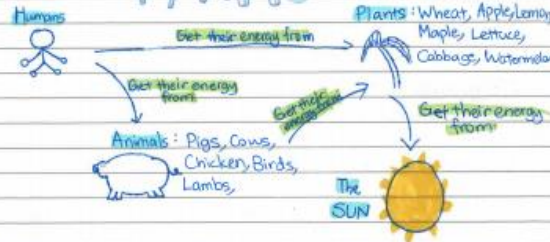 Humans
Plants: Wheat, Apple, Lemon
Maple, Lettuce,
Cabbage, Watermelo
Get their energy from
Get their energy
from
Get their
Get their energy
from
Animals: Pigs, Cows,
Chicken, Birds,
Lambs,
The
SUN